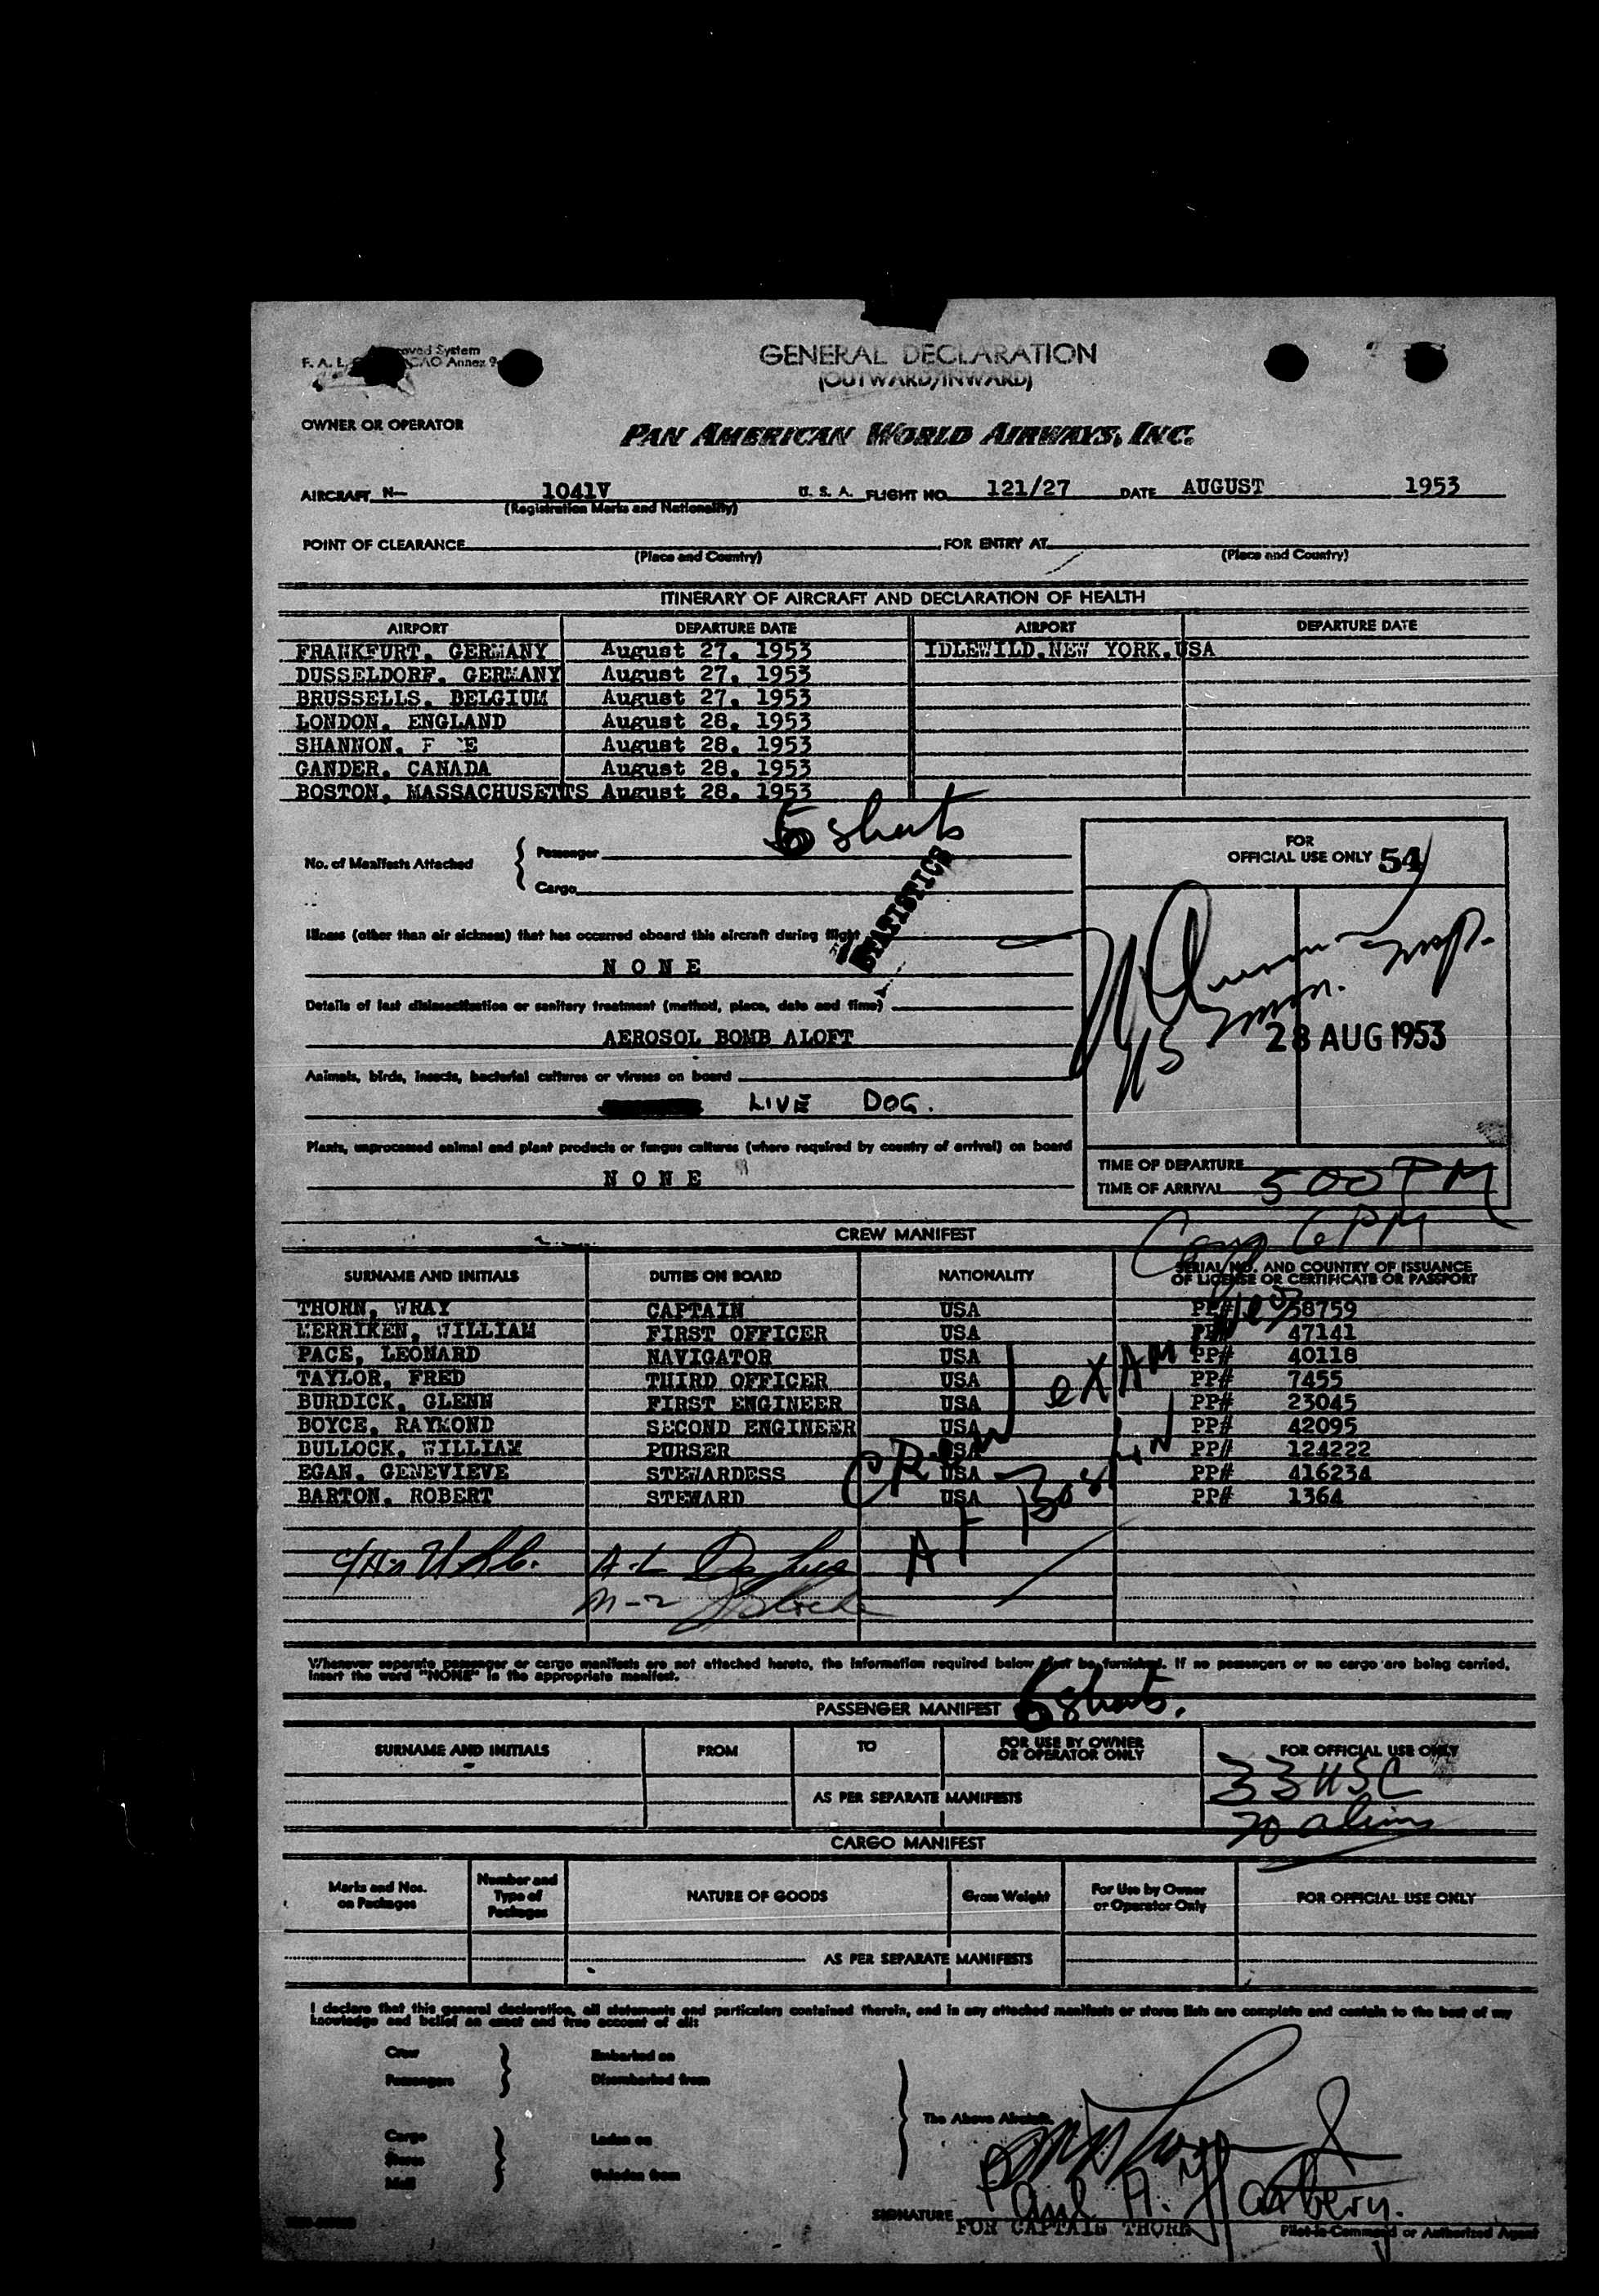 GENERAL DECLARATION
(OUTWARD/INWARD)
F. A. L. ICAO Annex 9
OWNER OR OPERATOR
PAN AMERICAN WORLD AIRWAYS, INC.
AIRCRAFT N— 1041V U. S. A. FLIGHT NO. 121/27 DATE AUGUST 1953
(Registration Marks and Nationality)
POINT OF CLEARANCE FOR ENTRY AT
(Place and Country) (Place and Country)
ITINERARY OF AIRCRAFT AND DECLARATION OF HEALTH
AIRPORT DEPARTURE DATE AIRPORT DEPARTURE DATE
FRANKFURT, GERMANY August 27, 1953 IDLEWILD,NEW YORK,USA
DUSSELDORF, GERMANY August 27, 1953
BRUSSELLS, BELGIUM August 27, 1953
LONDON, ENGLAND August 28, 1953
SHANNON, August 28, 1953
GANDER, CANADA August 28, 1953
BOSTON, MASSACHUSETTS August 28, 1953
No. of Manifests Attached
Passenger 5 sheets
Cargo
STATISTICS
Illness (other than air sickness) that has occurred aboard this aircraft during flight
N O N E
Details of last disinsectization or sanitary treatment (method, place, date and time)
AEROSOL BOMB ALOFT
Animals, birds, insects, bacterial cultures or viruses on board
LIVE DOG.
Plants, unprocessed animal and plant products or fungus cultures (where required by country of arrival) on board
N O N E
FOR
OFFICIAL USE ONLY 54
28 AUG 1953
TIME OF DEPARTURE
TIME OF ARRIVAL 500 PM
6 PM
CREW MANIFEST
SURNAME AND INITIALS DUTIES ON BOARD NATIONALITY SERIAL NO. AND COUNTRY OF ISSUANCE
OF LICENSE OR CERTIFICATE OR PASSPORT
THORN, WRAY CAPTAIN USA PP# 58759
MERRIKEN, WILLIAM FIRST OFFICER USA PP# 47141
PACE, LEONARD NAVIGATOR USA PP# 40118
TAYLOR, FRED THIRD OFFICER USA PP# 7455
BURDICK, GLENN FIRST ENGINEER USA PP# 23045
BOYCE, RAYMOND SECOND ENGINEER USA PP# 42095
BULLOCK, WILLIAM PURSER USA PP# 124222
EGAN, GENEVIEVE STEWARDESS USA PP# 416234
BARTON, ROBERT STEWARD USA PP# 1364
CREW EXAM
AT BOSTON
Whenever separate passenger or cargo manifests are not attached hereto, the information required below must be furnished. If no passengers or no cargo are being carried,
insert the word "NONE" in the appropriate manifest.
PASSENGER MANIFEST 5 sheets.
SURNAME AND INITIALS FROM TO FOR USE BY OWNER
OR OPERATOR ONLY FOR OFFICIAL USE ONLY
33 USC
AS PER SEPARATE MANIFESTS
20 aliens
CARGO MANIFEST
Marks and Nos.
on Packages Number and
Type of
Packages NATURE OF GOODS Gross Weight For Use by Owner
or Operator Only FOR OFFICIAL USE ONLY
AS PER SEPARATE MANIFESTS
I declare that this general declaration, all statements and particulars contained therein, and in any attached manifests or stores lists are complete and contain to the best of my
knowledge and belief an exact and true account of all:
Crew Embarked on
Passengers Disembarked from
The Above Aircraft.
Cargo Laden on
Stores
Mail Unladen from
SIGNATURE Paul A. Haxbery.
FOR CAPTAIN THORN Pilot-in-Command or Authorized Agent